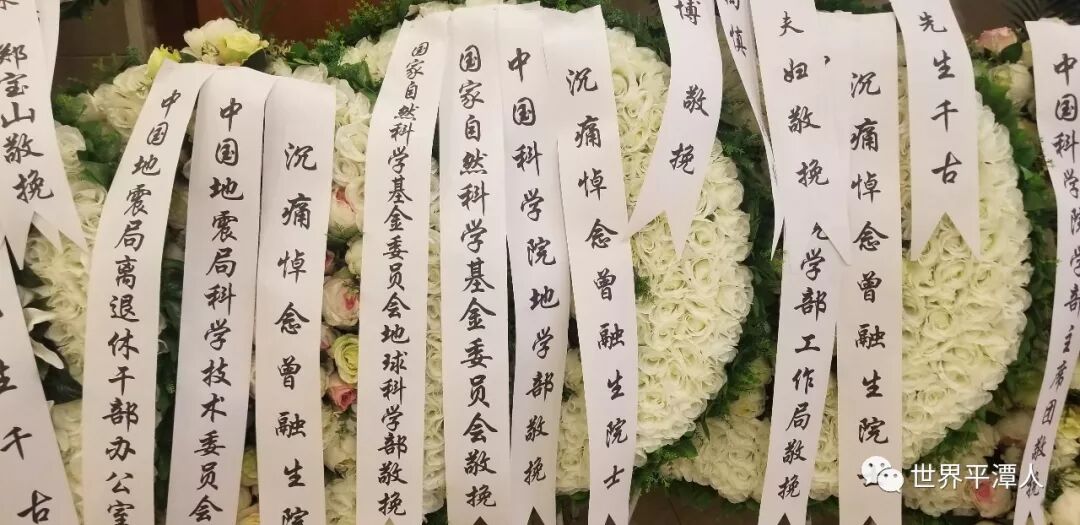 郑宝山敬挽
生千古
中国地震局离退休干部办公室
中国地震局科学技术委员会
沉痛悼念曾融生院
国家自然科学基金委员会地球科学部敬挽
国家自然科学基金委员会敬挽
中国科学院地学部敬挽
沉痛悼念曾融生院士
博敬挽
慎
夫妇敬挽
学部工作局敬挽
沉痛悼念曾融生院
先生千古
中国科学院学部主席团敬挽
世界平潭人